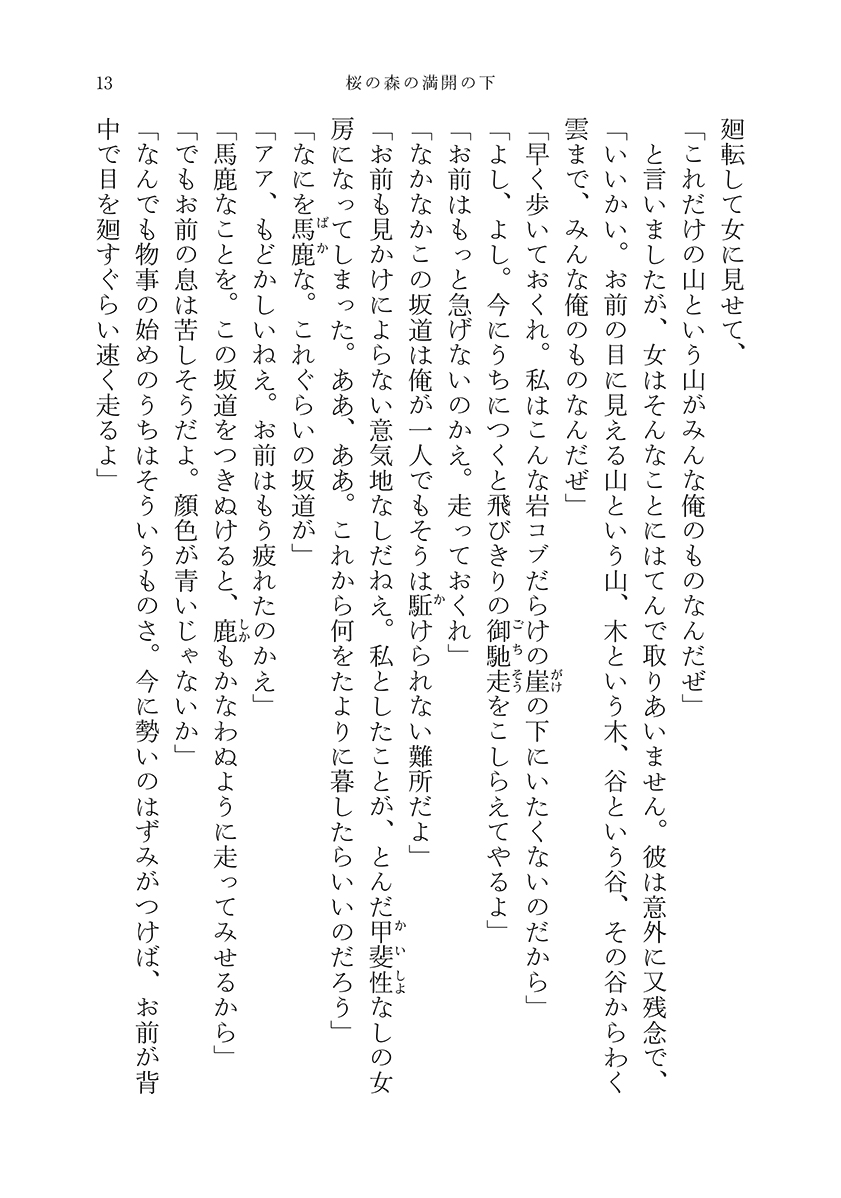 13
桜の森の満開の下
廻転して女に見せて、
「これだけの山という山がみんな俺のものなんだぜ」
と言いましたが、女はそんなことにはてんで取りあいません。彼は意外に又残念で、
「いいかい。お前の目に見える山という山、木という木、谷という谷、その谷からわく
雲まで、みんな俺のものなんだぜ」
「早く歩いておくれ。私はこんな岩コブだらけの崖がけの下にいたくないのだから」
「よし、よし。今にうちにつくと飛びきりの御馳走ごちそうをこしらえてやるよ」
「お前はもっと急げないのかえ。走っておくれ」
「なかなかこの坂道は俺が一人でもそうは駈かけられない難所だよ」
「お前も見かけによらない意気地なしだねえ。私としたことが、とんだ甲斐性かいしょなしの女
房になってしまった。ああ、ああ。これから何をたよりに暮したらいいのだろう」
「なにを馬鹿ばかな。これぐらいの坂道が」
「アア、もどかしいねえ。お前はもう疲れたのかえ」
「馬鹿なことを。この坂道をつきぬけると、鹿しかもかなわぬように走ってみせるから」
「でもお前の息は苦しそうだよ。顔色が青いじゃないか」
「なんでも物事の始めのうちはそういうものさ。今に勢いのはずみがつけば、お前が背
中で目を廻すぐらい速く走るよ」